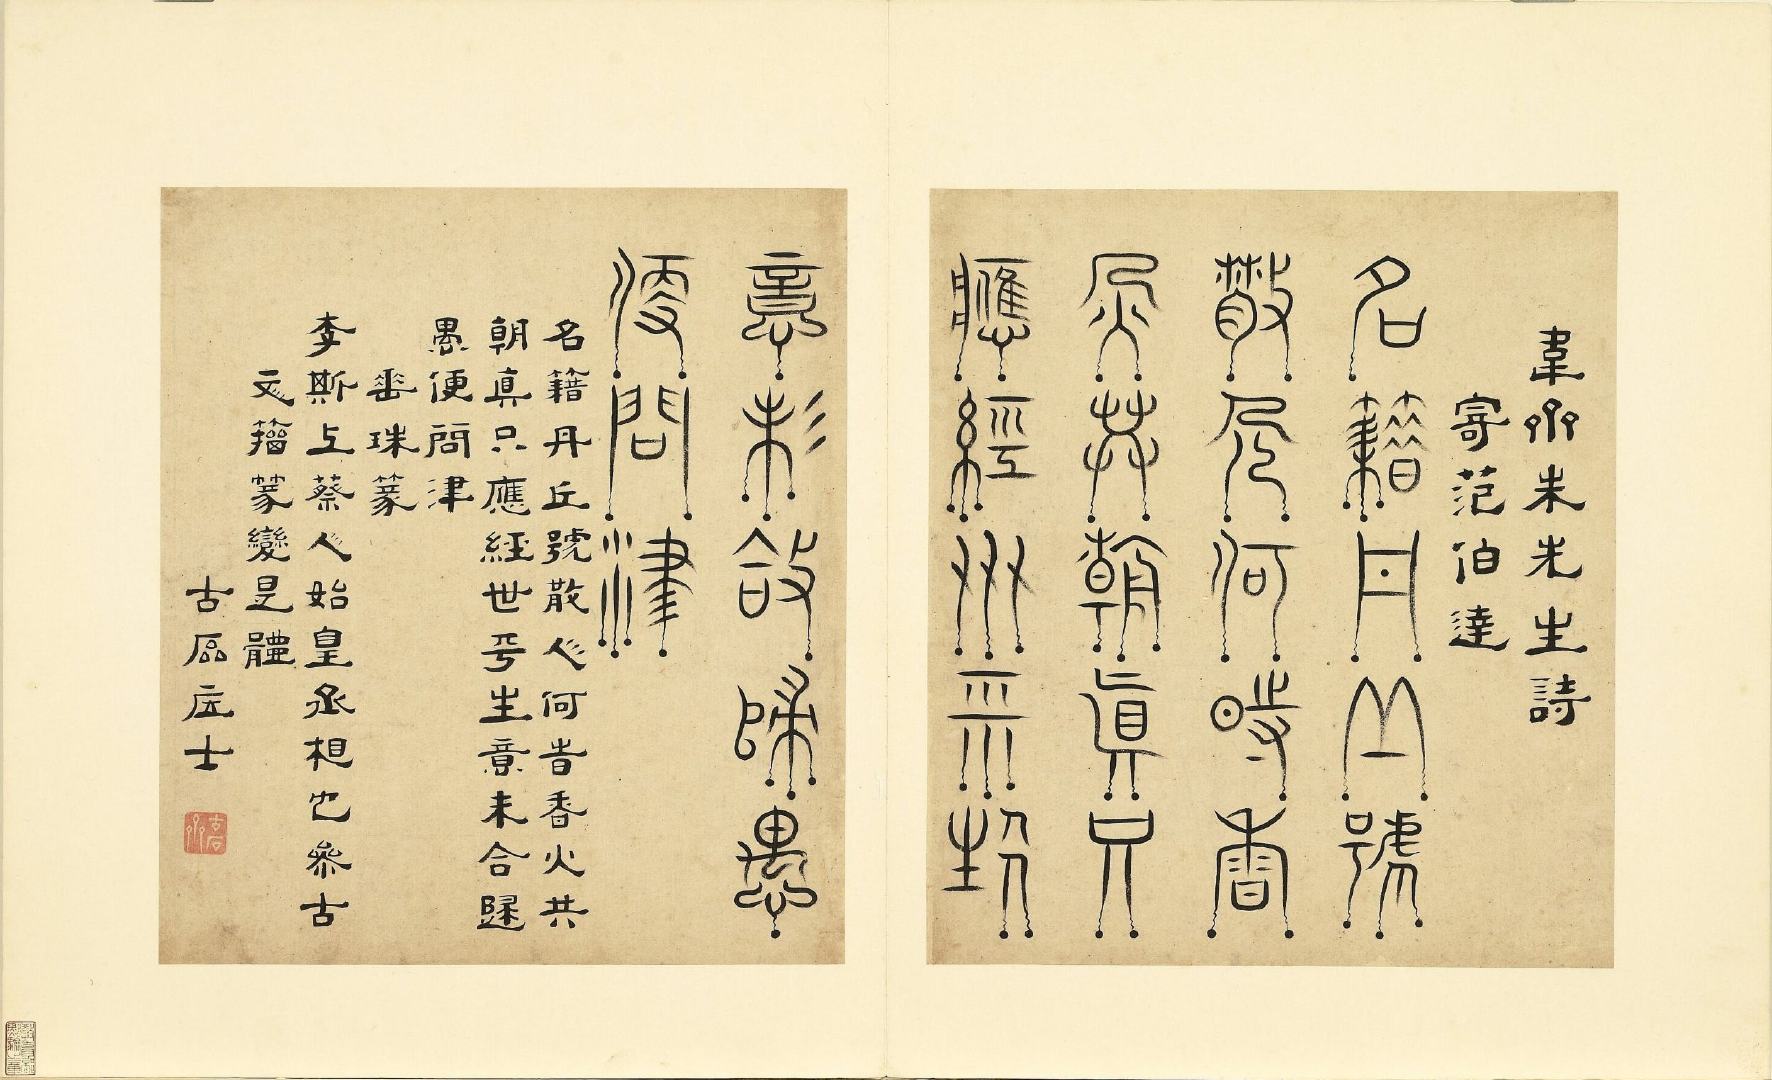 韋齋朱先生詩
寄范伯達
名籍丹丘號
散人何時香
火共朝真只
應經世平生
意未合歸愚
便問津
名籍丹丘號散人何旹香火共
朝真只應經世平生意未合歸
愚便問津
垂珠篆
李斯上蔡人始皇丞相也參古
文籀篆變是體
古 士